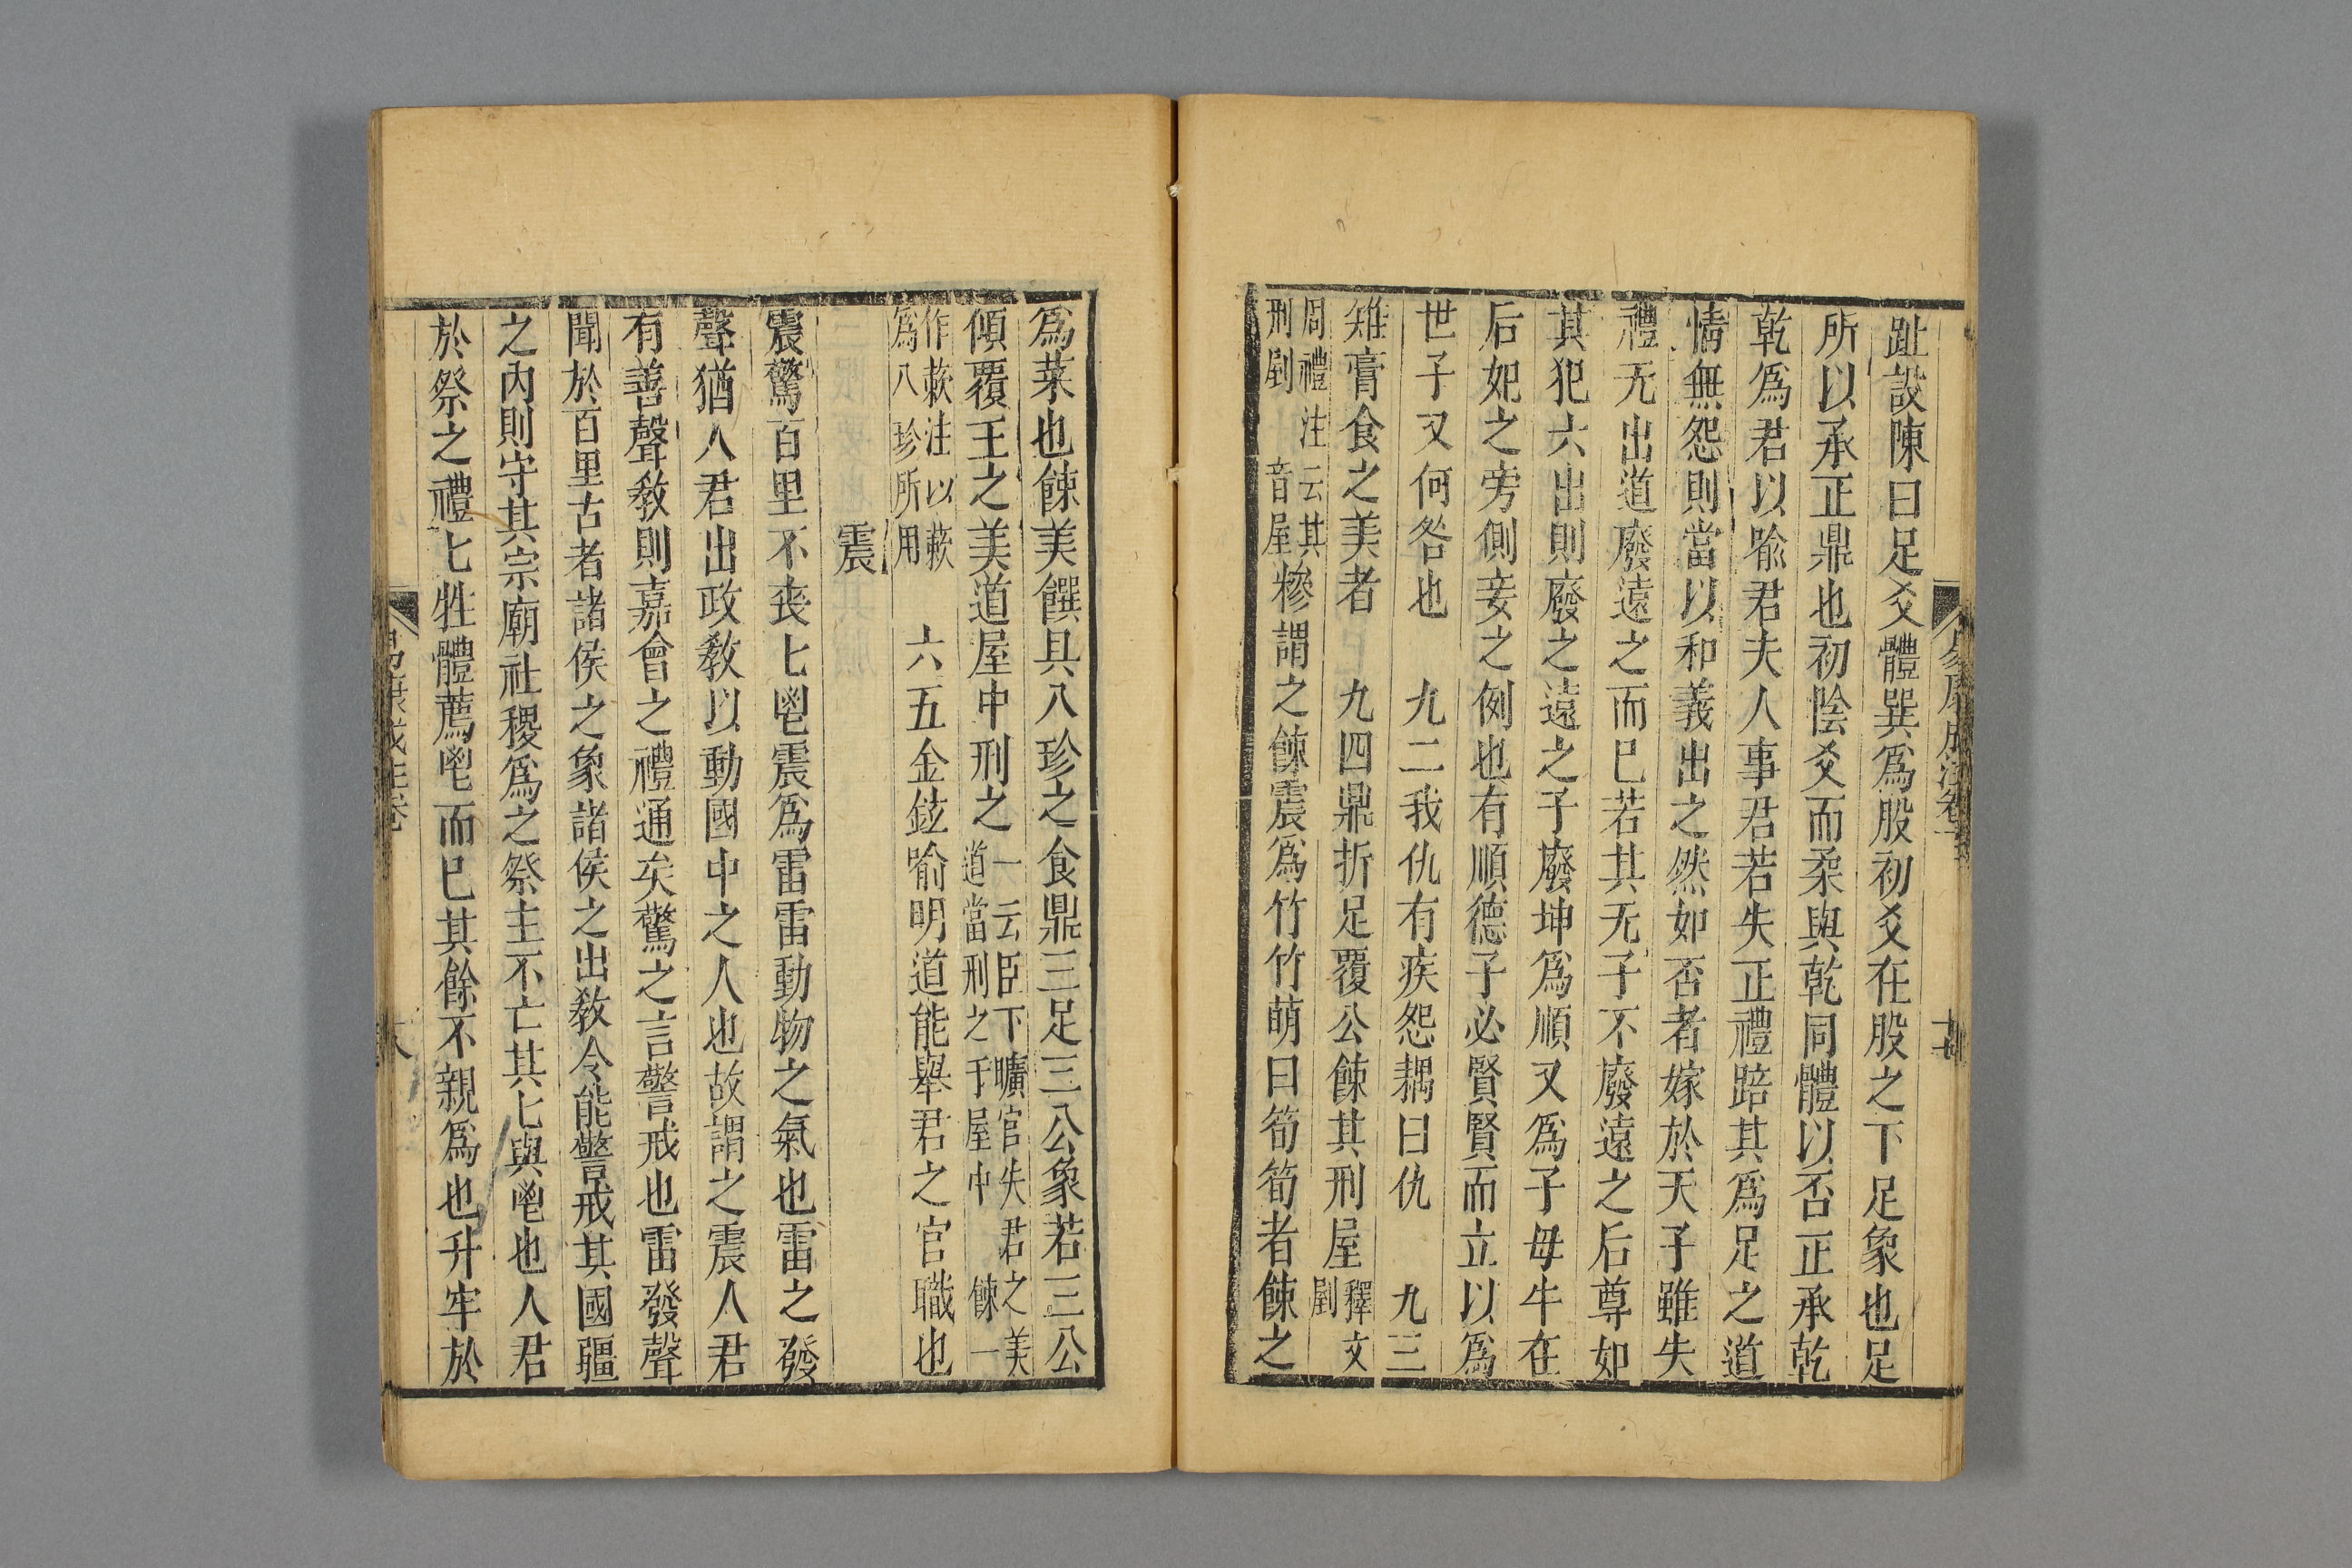 趾設陳曰足爻體巽爲股初爻在股之下足象也足
所以承正鼎也初陰爻而柔與乾同體以否正承乾
乾爲君以喻君夫人事君若失正禮踣其爲足之道
情無怨則當以和義出之然如否者嫁於天子雖失
禮无出道廢遠之而已若其无子不廢遠之后尊如
其犯六出則廢之遠之子廢坤爲順又爲子母牛在
后妃之旁側妾之例也有順德子必賢賢而立以爲
世子又何咎也 九二我仇有疾怨耦曰仇 九三
雉膏食之美者 九四鼎折足覆公餗其刑屋 釋文
剭
周禮注云其
刑剭 音屋 糝謂之餗震爲竹竹萌曰筍筍者餗之
爲菜也餗美饌具八珍之食鼎三足三公象若三公
傾覆王之美道屋中刑之 一云臣下曠官失君之美
道當刑之于屋中 餗一
作䔩注以䔩
爲八珍所用 六五金鉉喻明道能舉君之官職也
震
震驚百里不喪匕鬯震爲雷雷動物之氣也雷之發
聲猶人君出政教以動國中之人也故謂之震人君
有善聲教則嘉會之禮通矣驚之言警戒也雷發聲
聞於百里古者諸侯之象諸侯之出教令能警戒其國疆
之內則守其宗廟社稷爲之祭主不亡其匕與鬯也人君
於祭之禮匕牲體薦鬯而已其餘不親爲也升牢於